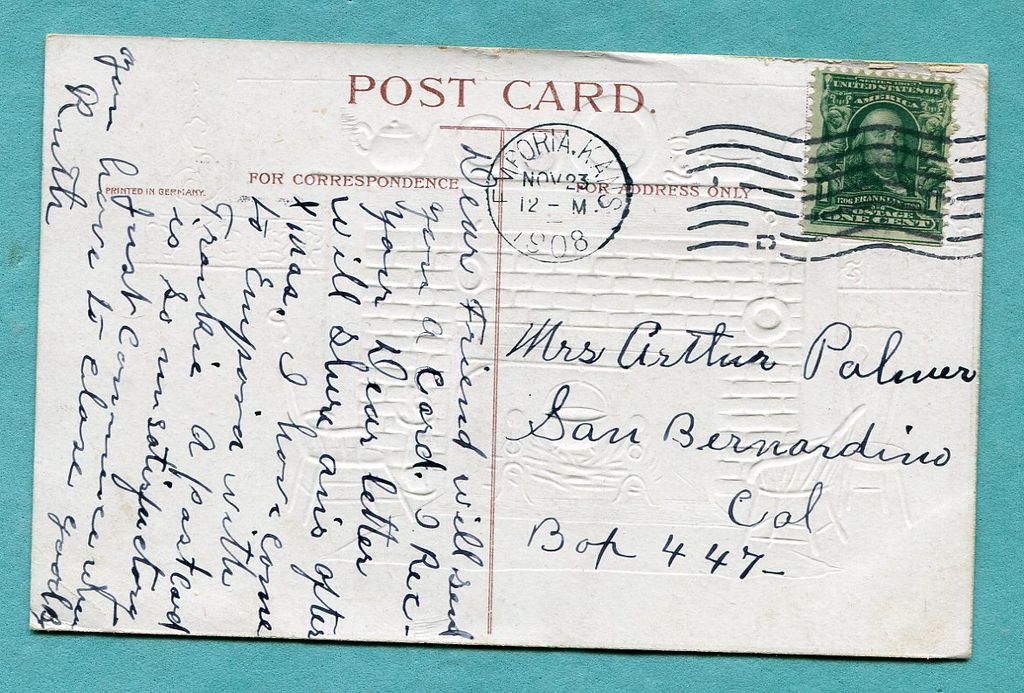 POST CARD.
FOR CORRESPONDENCE
FOR ADDRESS ONLY
PRINTED IN GERMANY.
EMPORIA, KANS
NOV 23
12 - M.
1908
D
SERIES 1902
UNITED STATES OF
AMERICA
1706 FRANKLIN
POSTAGE
ONE CENT
Dear Friend will send
you a Card. I Rec-
your Dear letter
will Shure ans after
Xmas. I have come
to Emporia with
Frankie A post Card
is so unsatisfactory
Just Commence when
you have to close
Goodby
Ruth
Mrs Arthur Palmer
San Bernardino
Cal
Box 447-